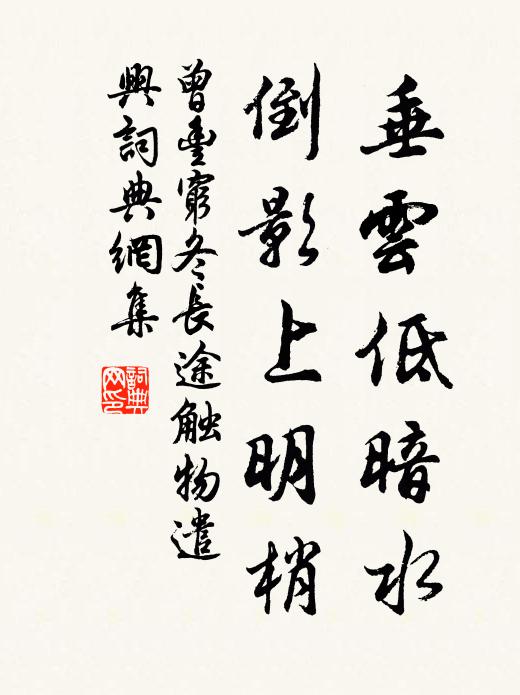 垂雲低暗水
倒影上明梢
曾豐窮冬長途触物遣
興詞典網集
詞典网印